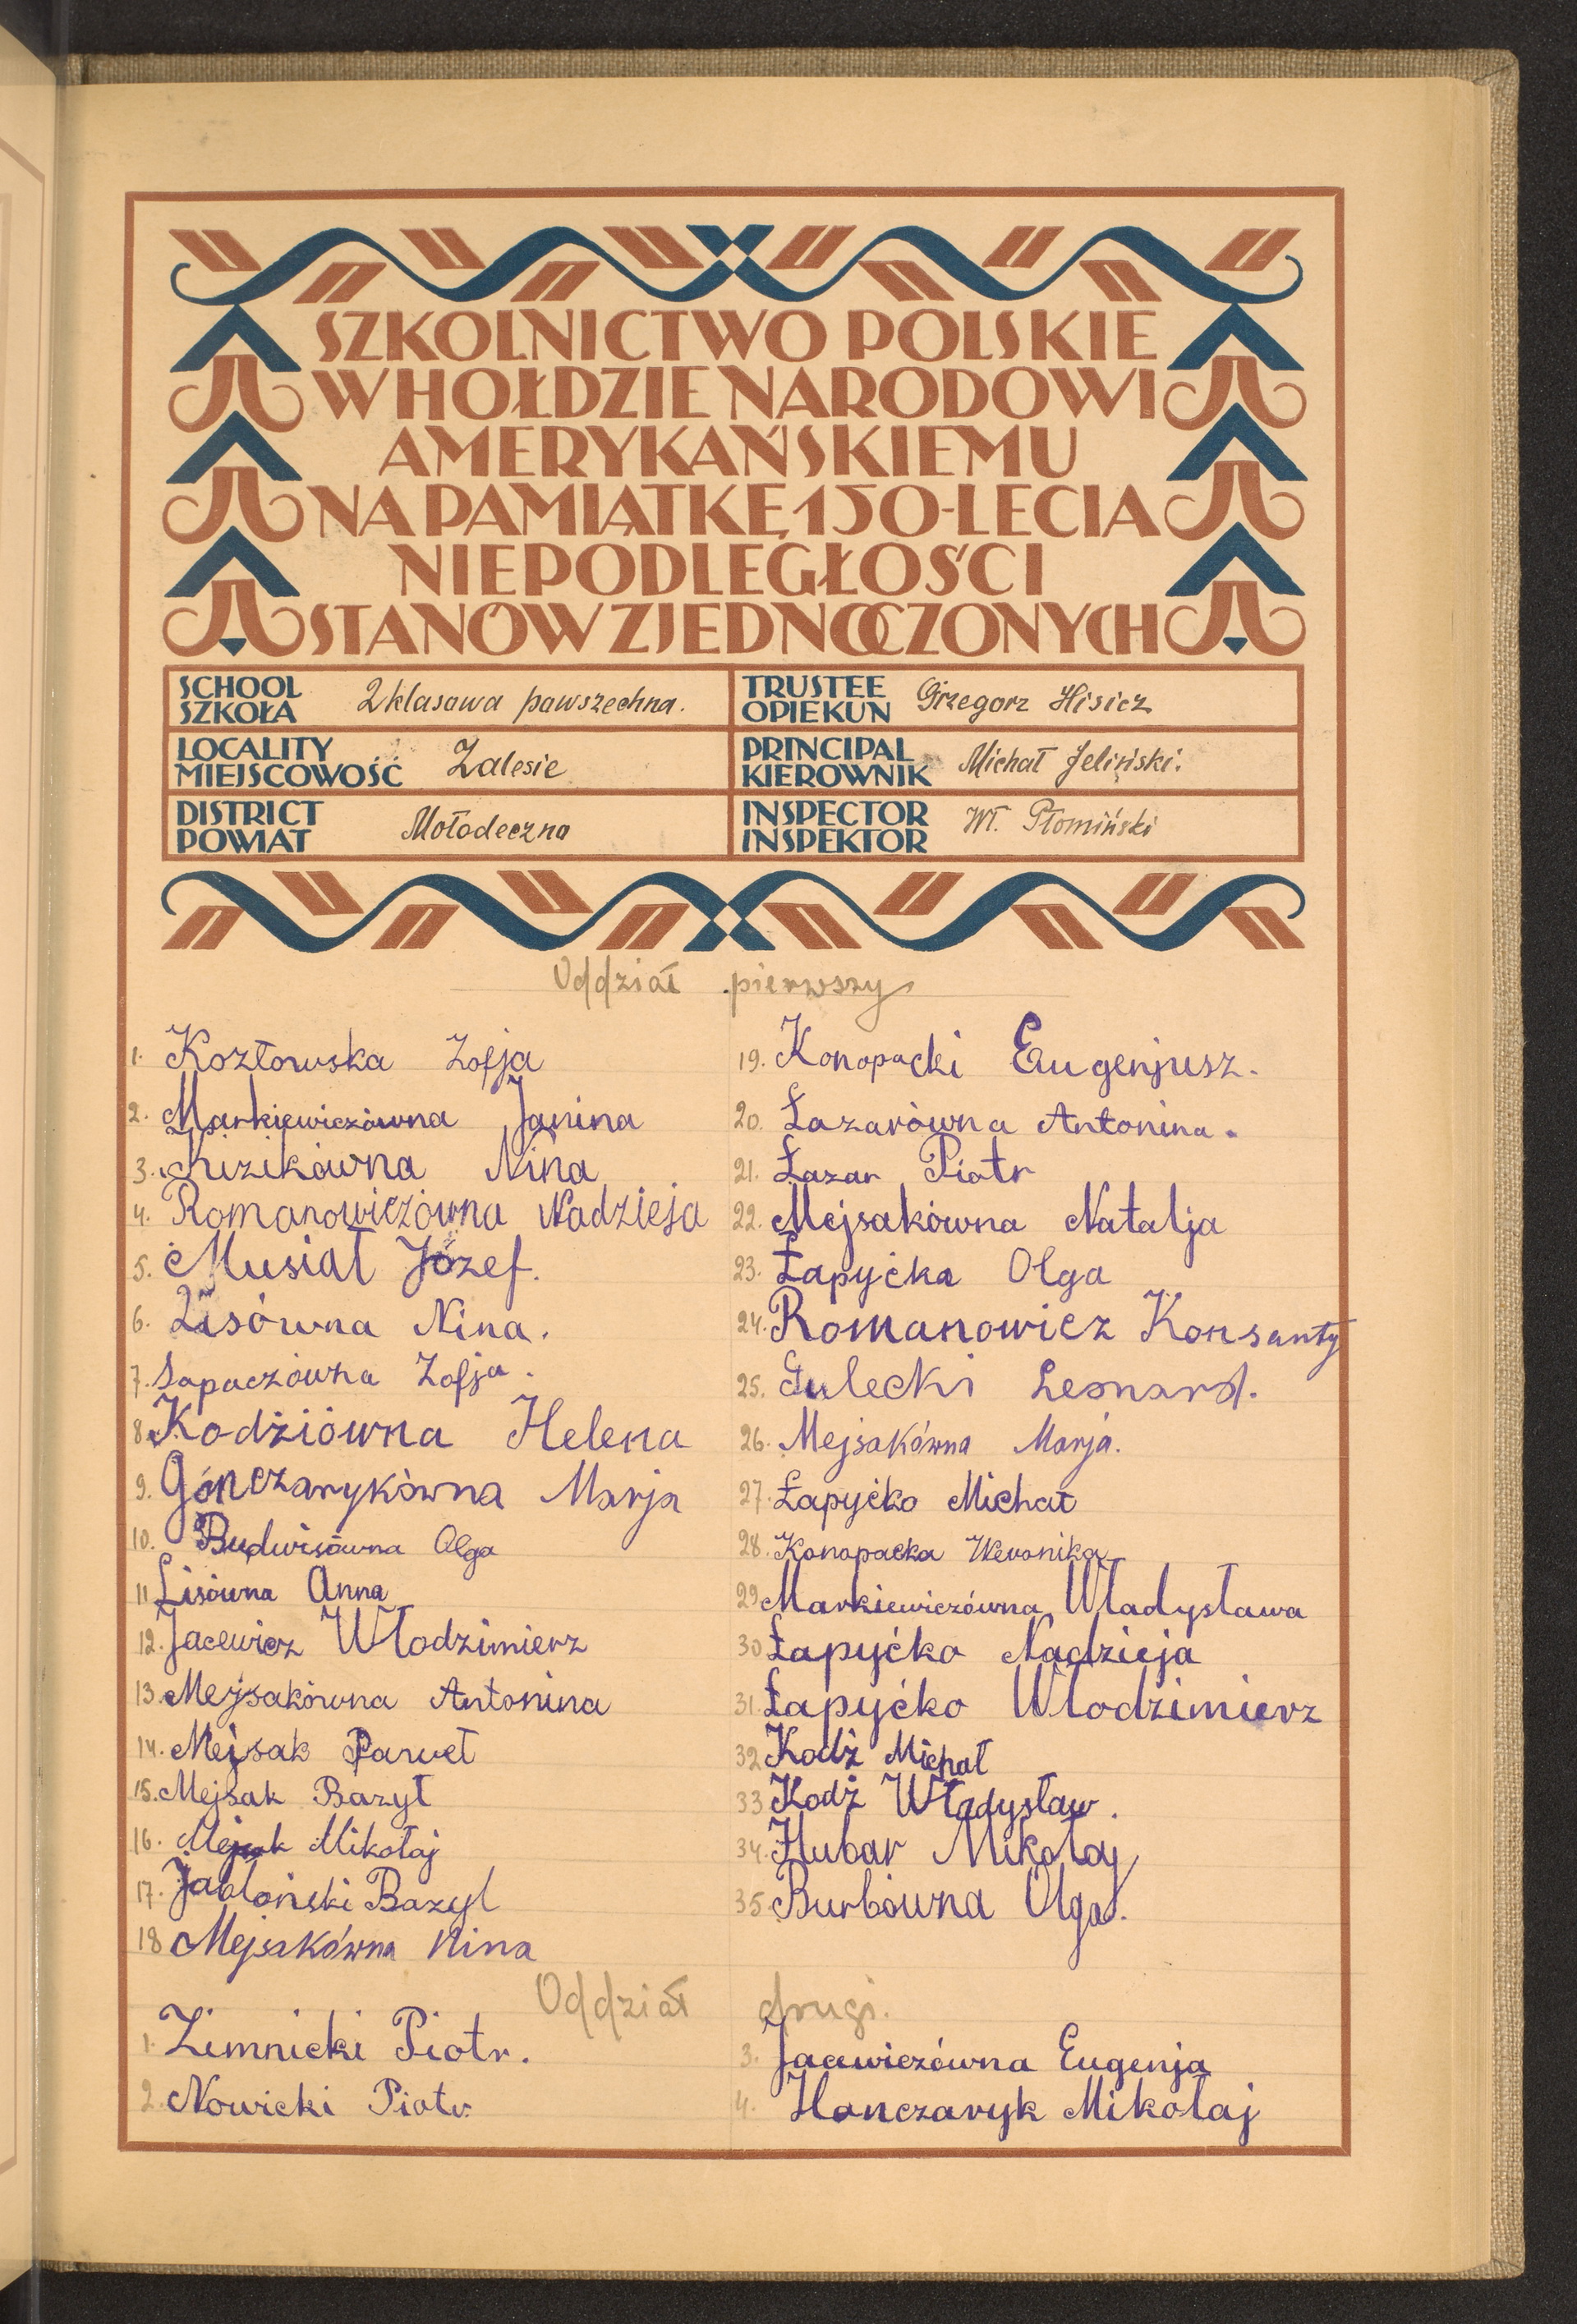 SZKOLNICTWO POLSKIE
W HOŁDZIE NARODOWI
AMERYKAŃSKIEMU
NA PAMIĄTKĘ 150-LECIA
NIEPODLEGŁOŚCI
STANÓW ZJEDNOCZONYCH
SCHOOL
SZKOŁA
2 klasowa powszechna.
TRUSTEE
OPIEKUN
Grzegorz Hisicz
LOCALITY
MIEJSCOWOŚĆ
Zalesie
PRINCIPAL
KIEROWNIK
Michał Jeliński.
DISTRICT
POWIAT
Mołodeczno
INSPECTOR
INSPEKTOR
Wł. Płomiński
Oddział pierwszy
1. Kozłowska Zofja
2. Markiewiczówna Janina
3. Kizikówna Nina
4. Romanowiczówna Nadzieja
5. Musiał Józef.
6. Lisówna Nina.
7. Sapaczówna Zofja.
8. Kodziówna Helena
9. Gónczarykówna Marja
10. Budwisówna Olga
11 Lisówna Anna
12. Jacewicz Włodzimierz
13. Mejsakówna Antonina
14. Mejsak Paweł
15. Mejsak Bazył
16. Mejsak Mikołaj
17. Jabłoński Bazyl
18 Mejsakówna Nina
19. Konopacki Eugenjusz.
20. Łazarówna Antonina.
21. Łazar Piotr
22. Mejsakówna Natalja
23. Łapyćka Olga
24. Romanowicz Konsanty
25. Gulecki Leonard.
26. Mejsakówna Marja.
27. Łapyćko Michał
28. Konopacka Weronika
29 Markiewiczówna Władysława
30 Łapyćko Nadzieja
31. Łapyćko Włodzimierz
32 Kodź Michał
33 Kodź Władysław.
34. Hubar Mikołaj
35. Burbówna Olga.
Oddział drugi.
1. Zimnicki Piotr.
2. Nowicki Piotr
3. Jacewiczówna Eugenja
4. Honczaryk Mikołaj